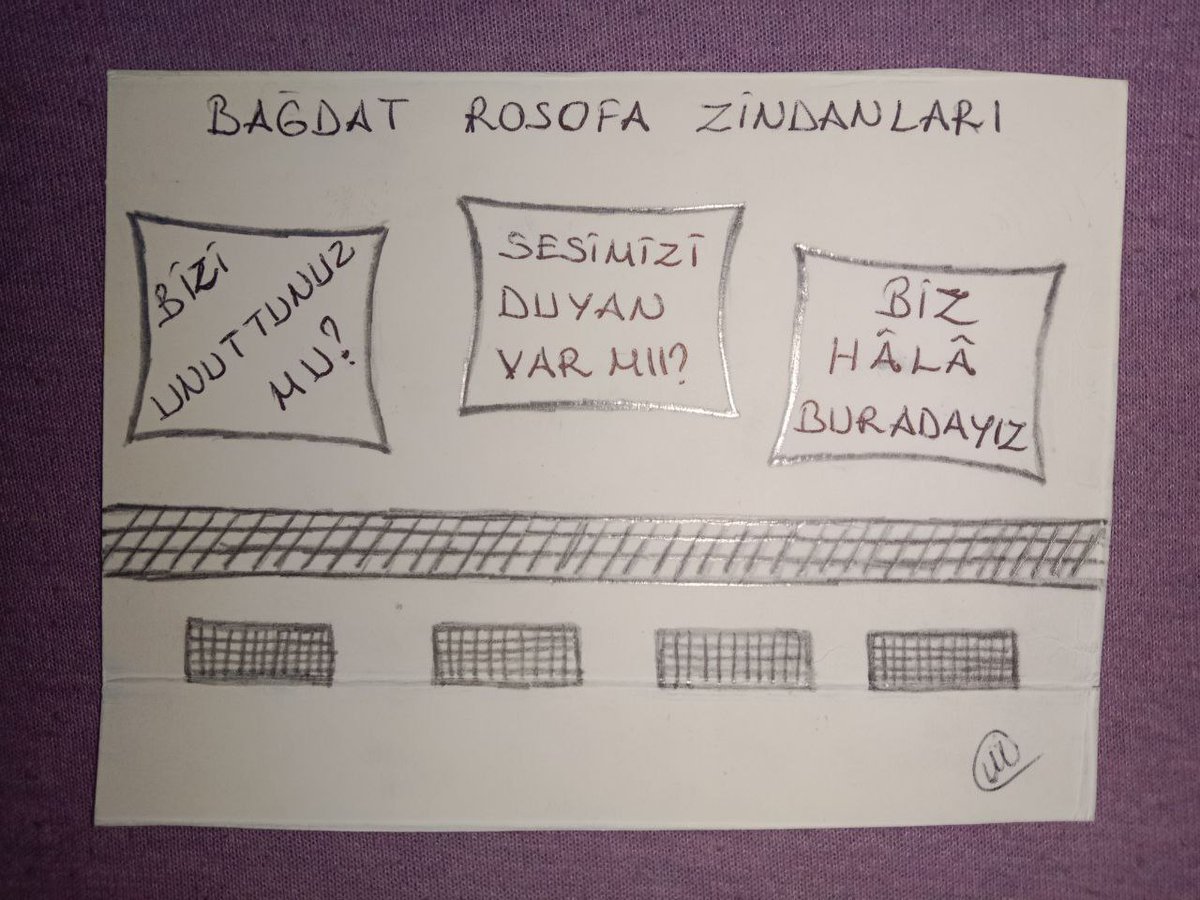 BAĞDAT ROSOFA ZİNDANLARI
BİZİ
UNUTTUNUZ
MU?
SESİMİZİ
DUYAN
VAR MII?
BİZ
HÂLÂ
BURADAYIZ